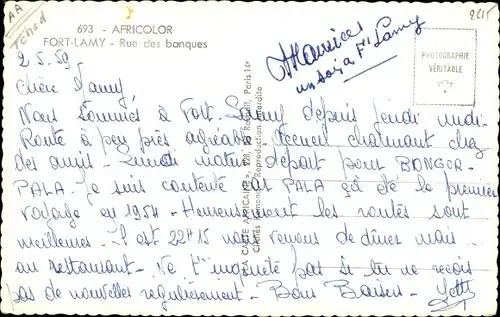 AA
Tchad
693 - AFRICOLOR
FORT-LAMY - Rue des banques
2.5.59
A Maurice
un soir a Ft Lamy
PHOTOGRAPHIE
VÉRITABLE
Chère Mamy,
Nous sommes à Fort-Lamy depuis jeudi midi.
Route à peu près agréable. Accueil charmant chez
des amis - Lundi matin départ pour BONGOR -
PALA. Je suis contente car PALA ça été le premier
voyage en 1954 - Heureusement les routes sont
meilleures - Il est 22H15 nous venons de dîner mais
au restaurant - Ne t'inquiète pas si tu ne reçois
pas de nouvelles régulièrement - Bons Baisers -
LA CARTE AFRICAINE
Reproduction interdite